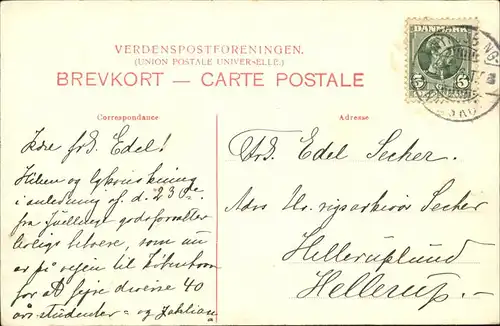 VERDENSPOSTFORENINGEN.
(UNION POSTALE UNIVERSELLE.)
BREVKORT — CARTE POSTALE
DANMARK
5 5
Correspondance
Adresse
Kære frk. Edel!
Hilsen og lykønskning
i anledning af d. 23de
fra Juellinge godsforvalter
som nu
er på vejen til København
for at fejre deres 40
års student og
Frk. Edel Secher.
Adrs Hr. rigsarkivar Secher
Helleruplund
Hellerup.—